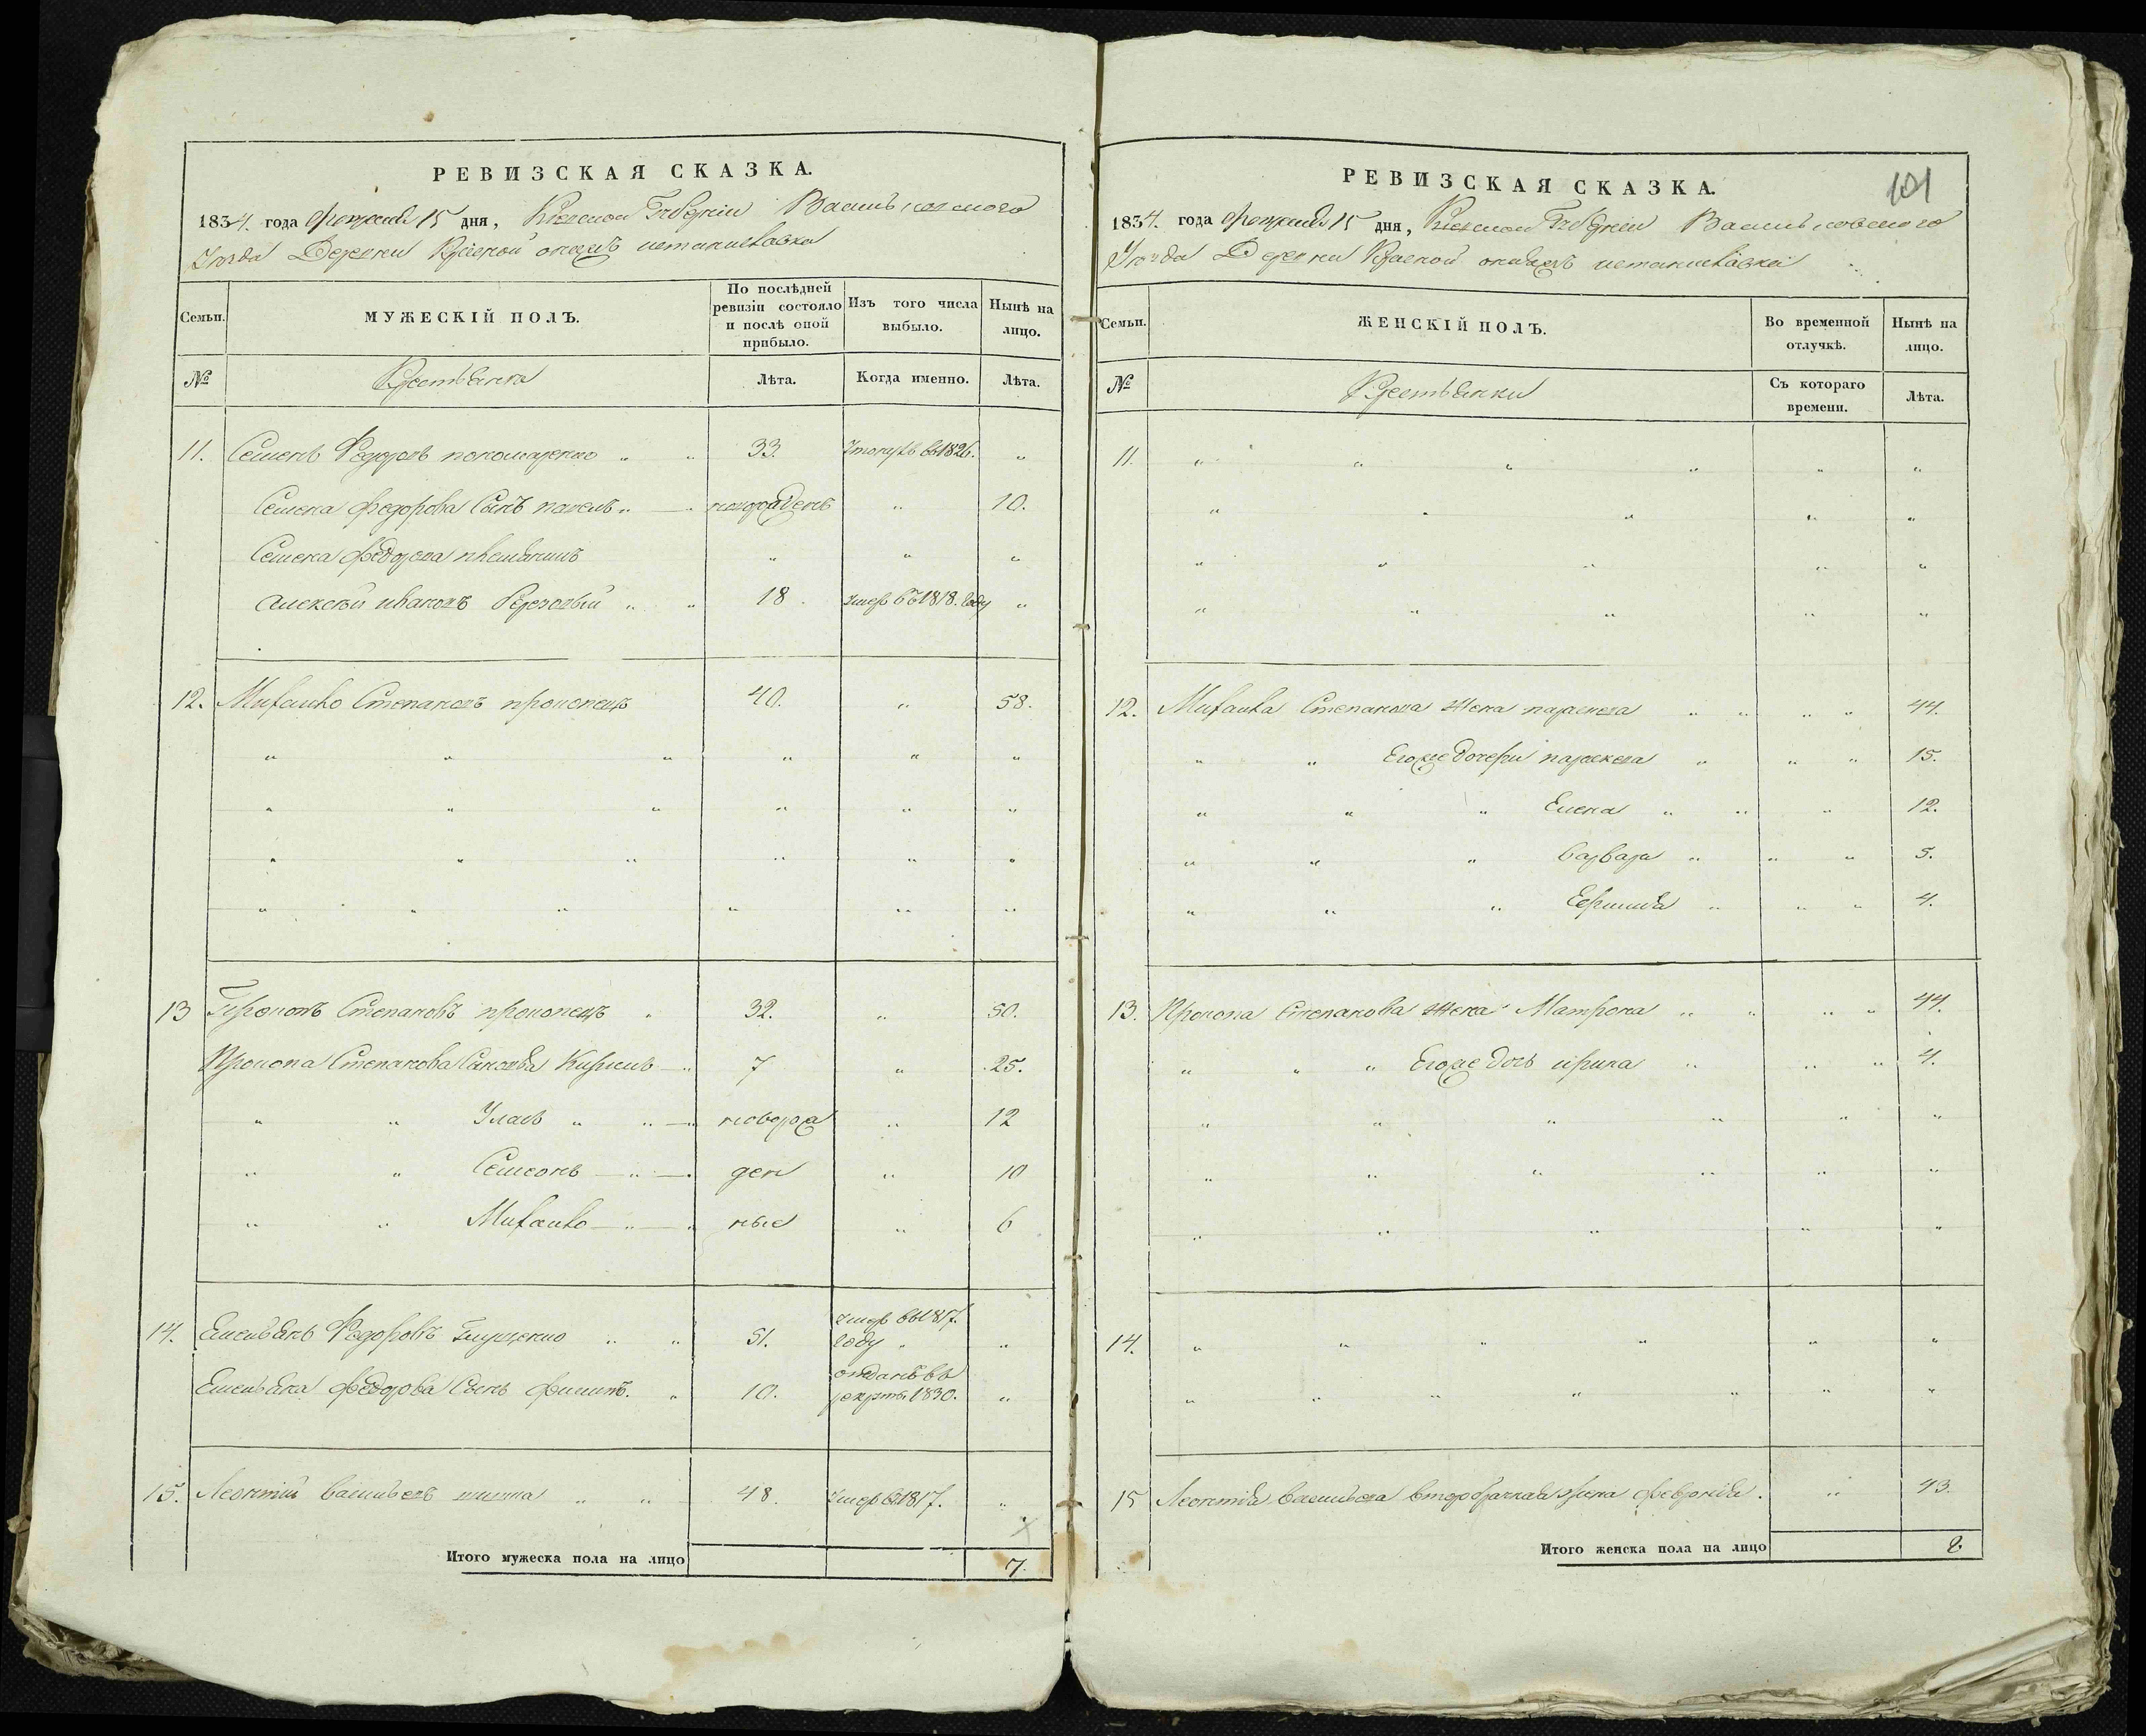 РЕВИЗСКАЯ СКАЗКА.
1834. года февраля 15 дня, Кіевской Губерніи Васильковского
Уезда Деревни
Семьи. МУЖЕСКІЙ ПОЛЪ. По послѣдней ревизіи состояло и послѣ оной прибыло. Изъ того числа выбыло. Нынѣ на лицо.
№ Крестьяне Лѣта. Когда именно. Лѣта.
11. Семенъ Федоровъ „ „ 33. 1826. „
Семена Федорова Сынъ павелъ „ новорожденъ „ 10.
Семена Федорова племянникъ „ „ „
алексей ивановъ „ „ 18. умеръ въ 1818. году „
12. Михайло Степановъ прокопецъ 40. „ 58.
13 Прокопъ Степановъ прокопецъ „ 32. „ 50.
Прокопа Степанова Сыновья Кирилъ 7 „ 25.
„ „ Уласъ „ „ новорож „ 12
„ „ Семеонъ „ ден „ 10
„ „ Михайло „ ные „ 6
14. Емельянъ Федоровъ „ „ 51. умеръ въ 1817. году „ „
Емельяна Федорова Сынъ филипъ. „ 10. отданъ въ рекруты 1830. „
15. Леонтий васильевъ „ „ 48. умеръ въ 1817. „
Итого мужеска пола на лицо 7.
101
РЕВИЗСКАЯ СКАЗКА.
1834. года февраля 15 дня, Кіевской Губерніи Васильковского
Уезда Деревни
Семьи. ЖЕНСКІЙ ПОЛЪ. Во временной отлучкѣ. Нынѣ на лицо.
№ Крестьянки Съ котораго времени. Лѣта.
11. „ „ „ „ „ „
12. Михайла Степанова жена параскева „ „ „ „ 44.
„ „ Егоже дочери параскева „ „ „ 15.
„ „ „ Елена „ „ „ 12.
„ „ „ варвара „ „ „ 5.
„ „ „ „ „ „ 4.
13. Прокопа Степанова жена Матрона „ „ „ „ 44.
„ „ „ Егоже дочь ирина „ „ „ 4.
14. „ „ „ „ „ „
15 Леонтия васильева второбрачная жена феврония. „ 43.
Итого женска пола на лицо 8.